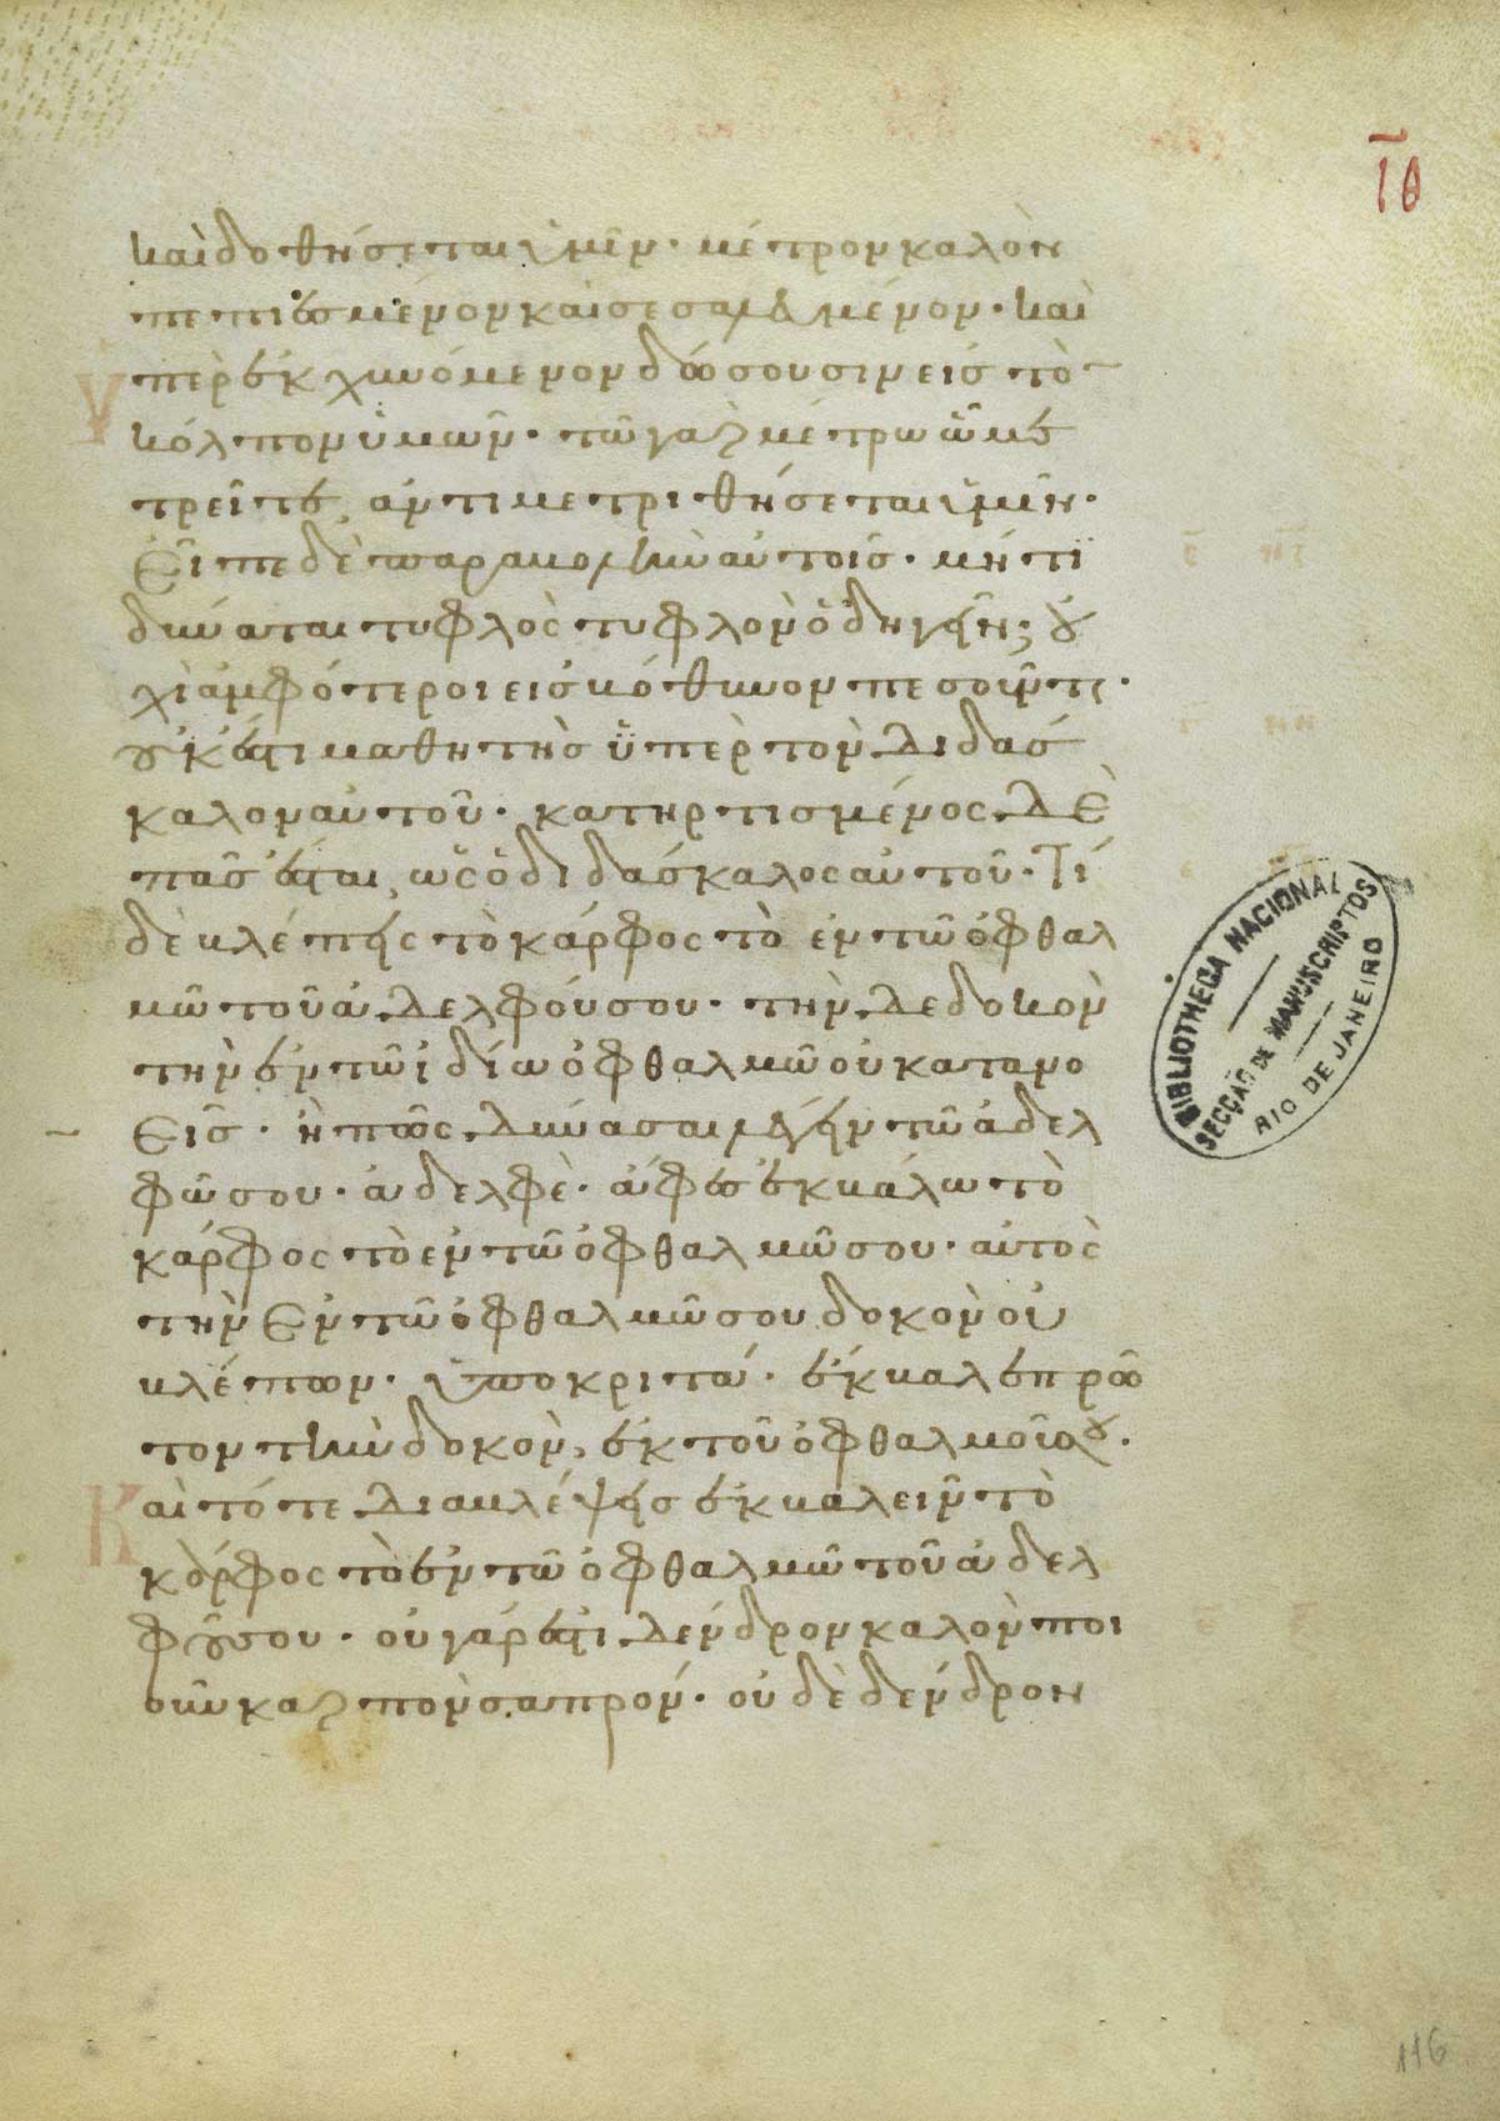 ιθ
καὶ δοθήσεται ὑμῖν· μέτρον καλὸν
πεπιεσμένον καὶ σεσαλευμένον· καὶ
ὑπερεκχυνόμενον δώσουσιν εἰς τὸ
κόλπον ὑμῶν· τῶ γαρ μέτρω ὧ με
τρεῖτε, ἀντιμετριθήσεται ὑμῖν·
Εἶπε δὲ παραβολὴν αὐτοῖς· μήτι
δύναται τυφλὸς τυφλὸν ὁδηγεῖν; οὐ
χὶ ἀμφότεροι εἰς βόθυνον πεσοῦνται·
οὐκ ἔστι μαθητὴς ὑπὲρ τὸν διδάσ
καλον αὐτοῦ· κατηρτισμένος δὲ
πᾶς ἔσται, ὡς ὁ διδάσκαλος αὐτοῦ· Τί
δὲ βλέπεις τὸ κάρφος τὸ ἐν τῶ ὀφθαλ
μῶ τοῦ ἀδελφού σου· τὴν δε δοκὸν
τὴν ἐν τῶ ἰδίω ὀφθαλμῶ οὐ κατανο
εῖς· ἢ πῶς δύνασαι λέγειν τῶ ἀδελ
φῶ σου· ἀδελφὲ· ἄφες ἐκβάλω τὸ
κάρφος τὸ ἐν τῶ ὀφθαλμῶ σου· αὐτὸς
τὴν ἐν τῶ ὀφθαλμῶ σου δοκὸν οὐ
βλέπων· ὑποκριτά· ἔκβαλε πρῶ
τον τὴν δοκὸν, ἐκ τοῦ ὀφθαλμοῦ σου·
Καὶ τότε διαβλέψεις ἐκβαλεῖν τὸ
κάρφος τὸ ἐν τῶ ὀφθαλμῶ τοῦ ἀδελ
φοῦ σου· οὐ γάρ ἐστι δένδρον καλὸν ποι
οῦν καρπὸν σαπρόν· οὐδὲ δένδρον
BIBLIOTHECA NACIONAL
SECÇÃO DE MANUSCRIPTOS
RIO DE JANEIRO
116